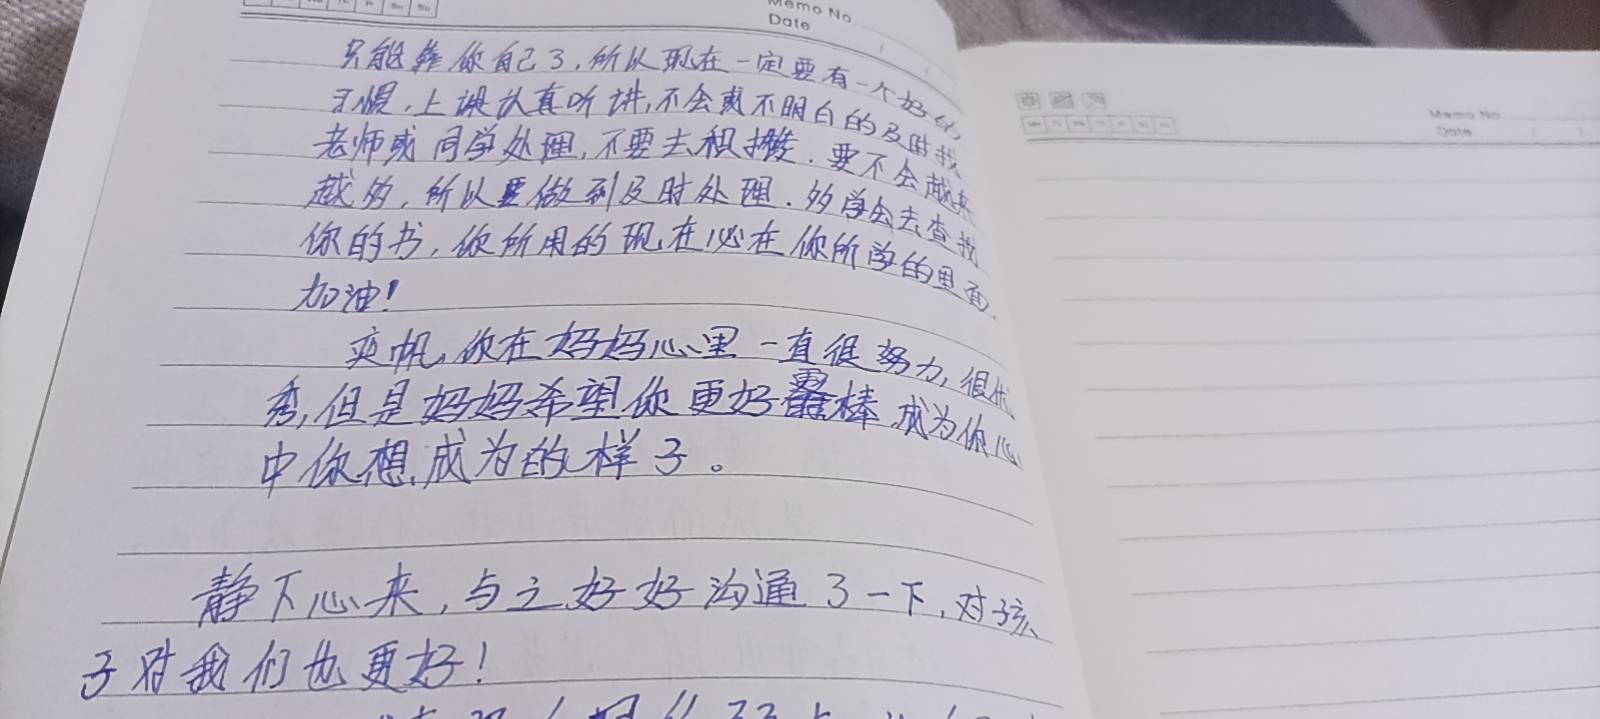 Memo No.
Date
只能靠你自己了,所以现在一定要有一个好的
习惯,上课认真听讲,不会或不明白的及时找
老师或同学处理,不要去积攒.要不会越来
越多,所以要做到及时处理.多学会去查找
你的书,你所用的现在必在你所学的里面.
加油!
奕帆,你在妈妈心里一直很努力,很优
秀,但是妈妈希望你更好 棒,成为你心
中你想成为的样子。
静下心来,与之好好沟通了一下,对孩
子对我们也更好!
Memo No.
Date